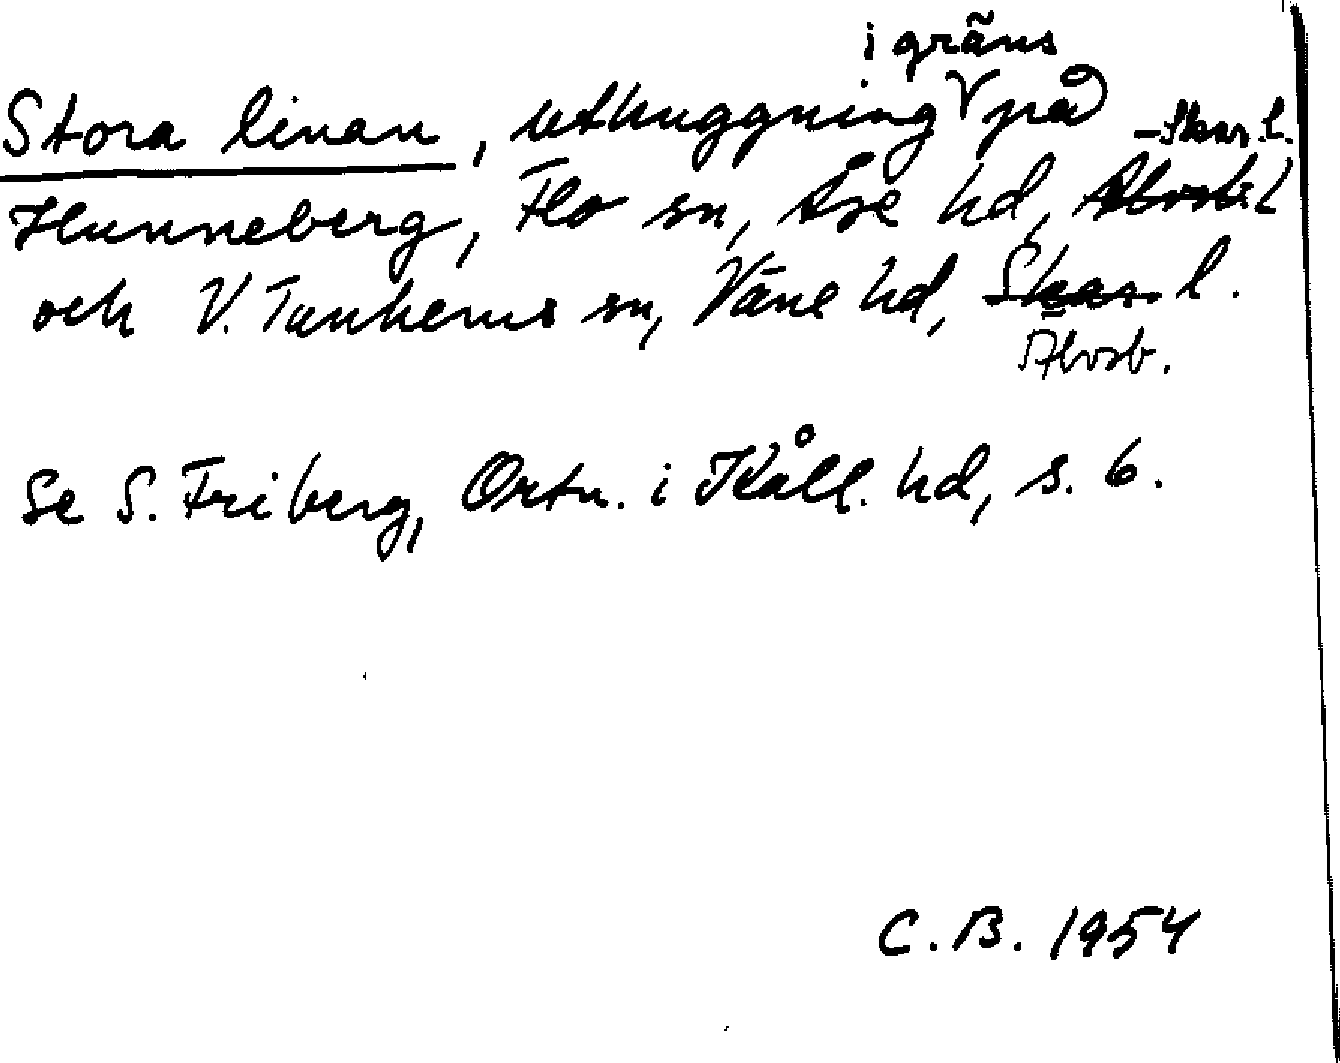 i gräns
Stora linan, uthuggning på Skar. l.
Hunneberg, Flo sn, Åse hd, Älvsb. l
och V. Tunhems sn, Väne hd, Skar. l.
Älvsb.
Se S. Friberg, Ortn. i Kåll. hd, s. 6.
C.B. 1954